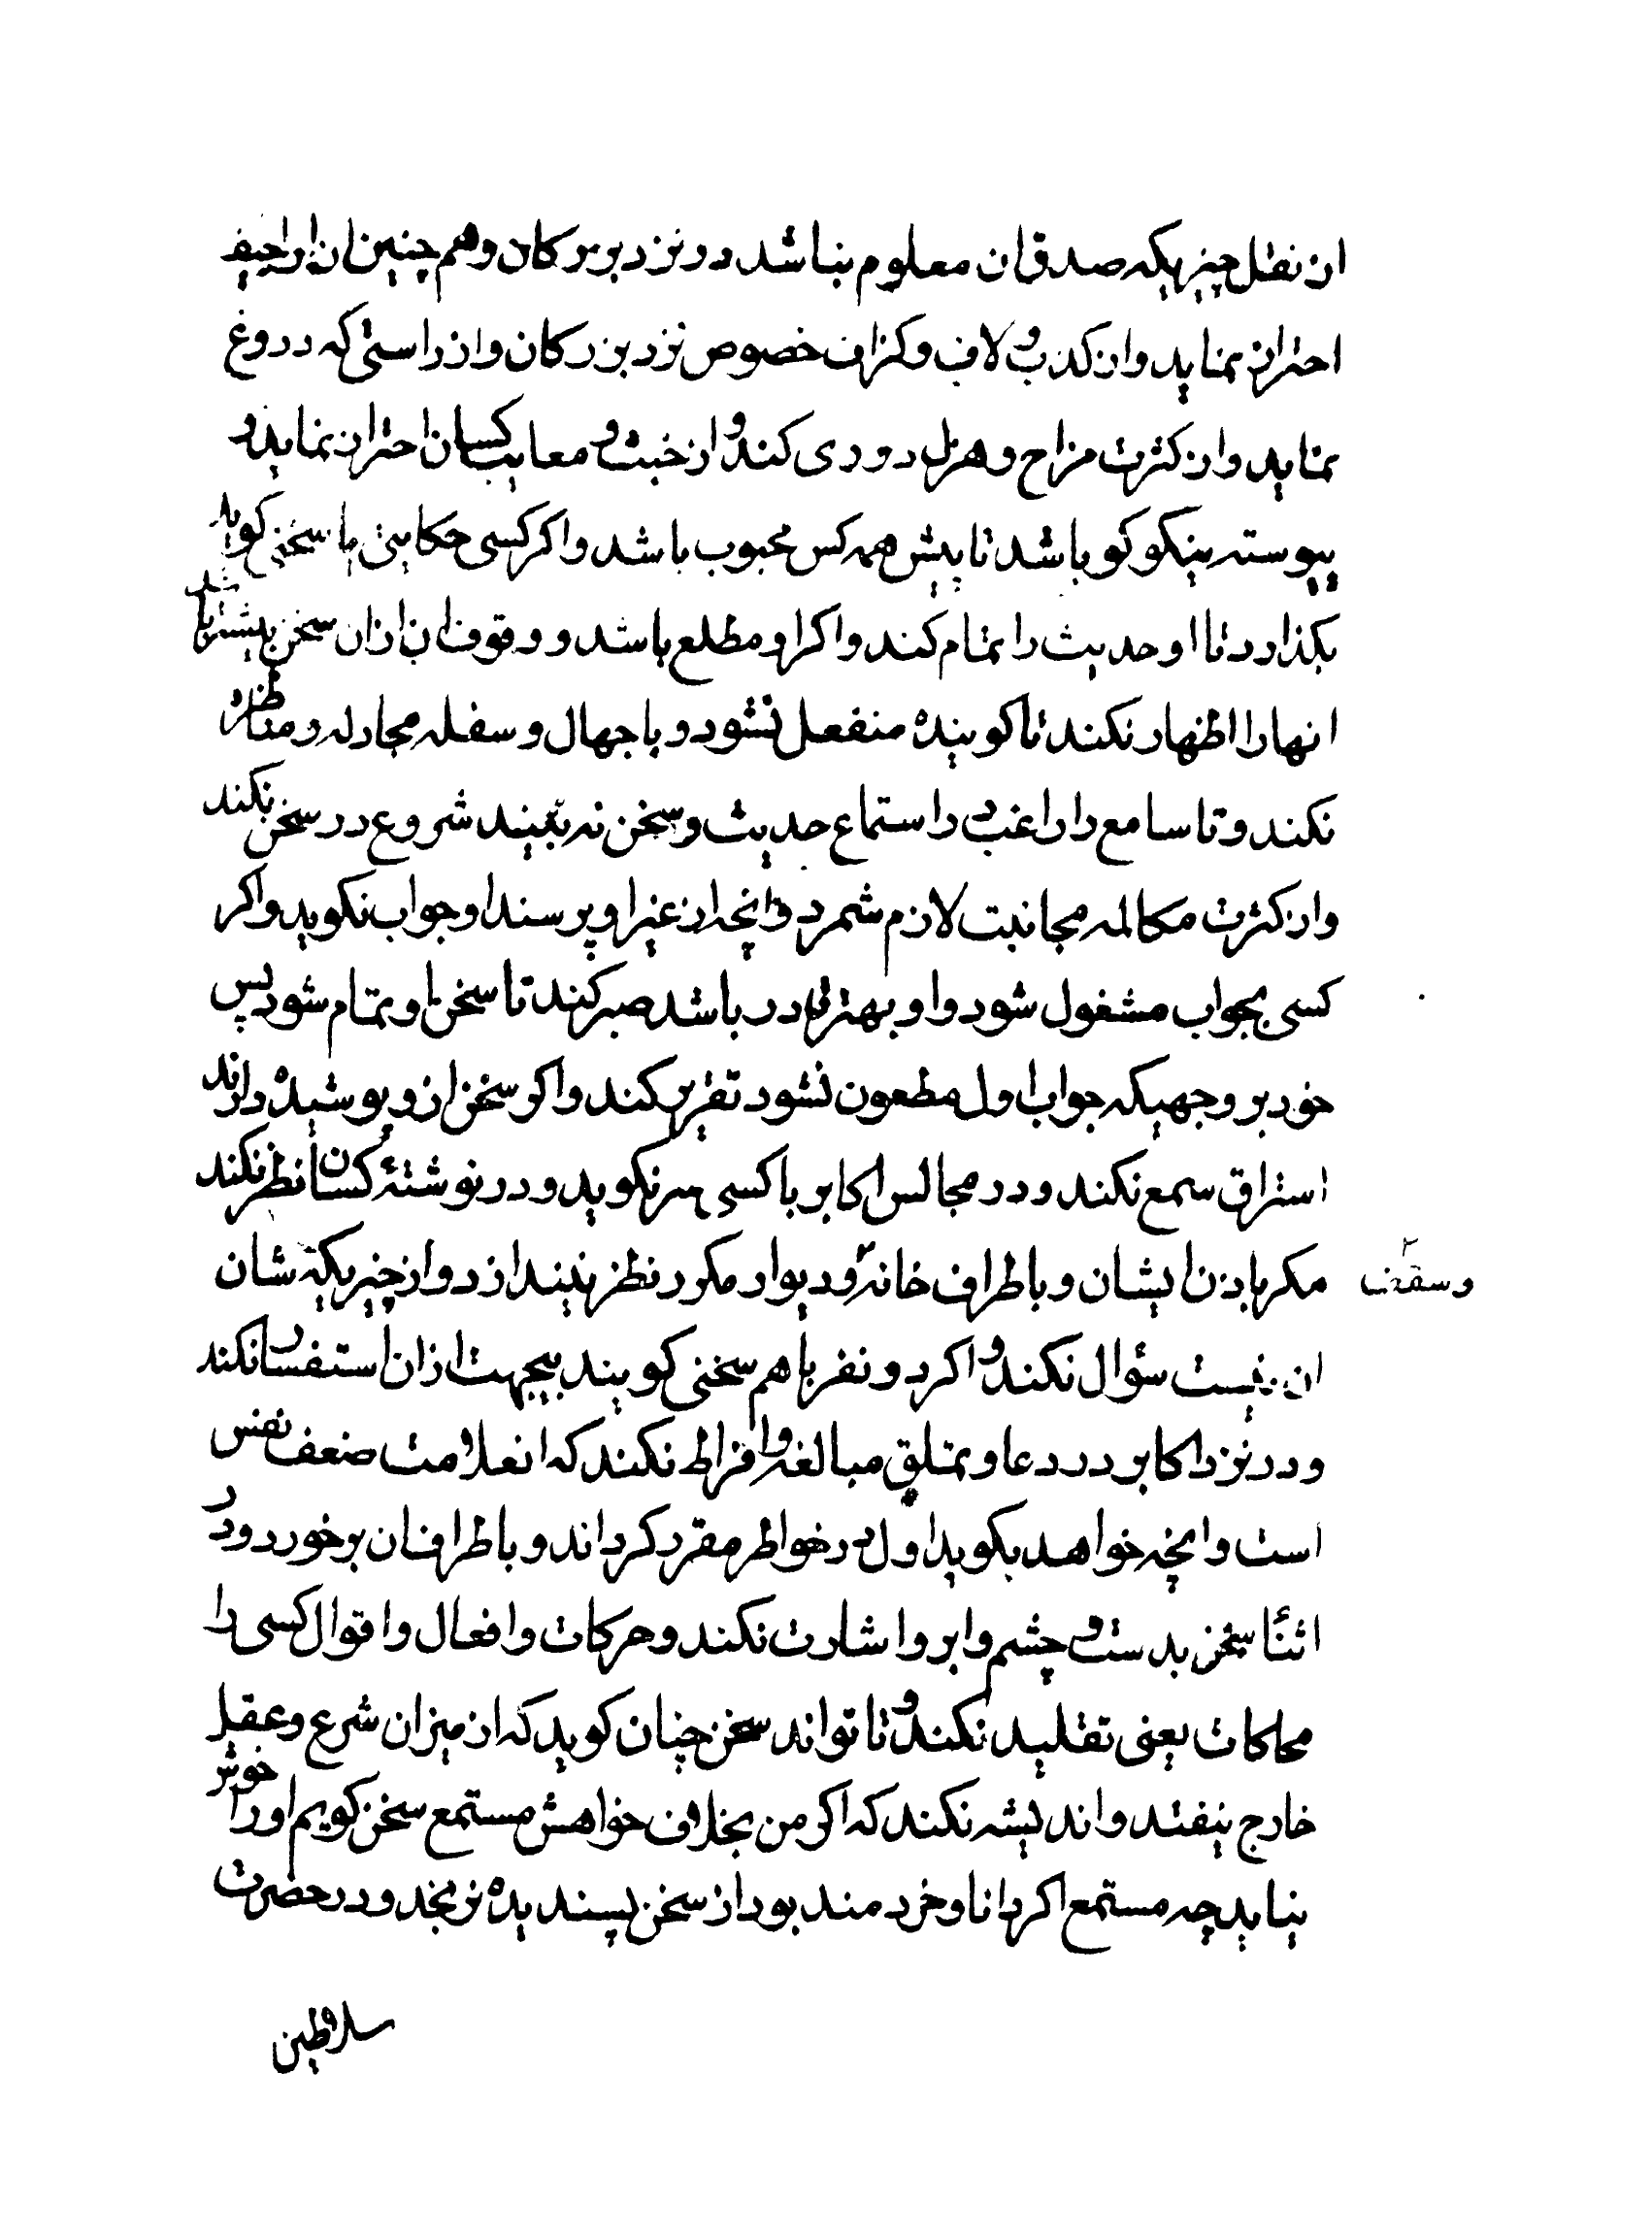 از نقل چیزیکه صدق ان معلوم نباشد در نزد بزرکان وهم چنین از اراجیف
احتراز نماید و از کذب و لاف و کزاف خصوص نزد بزرکان و از راستی که دروغ
نماید و از کثرت مزاح و هزل دوری کند و از خبث و معایب کسان احتراز نماید و
پیوسته نیکو کو باشد تا پیش همه کس محبوب باشد و اکر کسی حکایتی یا سخنی کوید
بکذارد تا او حدیث را تمام کند و اکر او مطلع باشد و وقوف ان از ان سخن پیشتر باشد
انها را اظهار نکند تا کوینده منفعل نشود و با جهال و سفله مجادله و مناظره
نکند و تا سامع را راغب در استماع حدیث و سخن نه بیند شروع در سخن نکند
و از کثرت مکالمه مجانبت لازم شمرد و انچه از غیر او پرسند او جواب نکوید و اکر
کسی بجواب مشغول شود و او بهتر قادر باشد صبر کند تا سخن او تمام شود پس
خود بر وجهیکه جواب اول مطعون نشود تقریر کند و اکر سخن از و پوشیده دارند
استراق سمع نکند و در مجالس اکابر با کسی سر نکوید و در نوشتهٔ کسان نظر نکند
مکر باذن ایشان و باطراف خانه و دیوار مکرر نظر نیندازد و از چیزیکه شان
و سقف
ان نیست سؤال نکند و اکر دو نفر با هم سخنی کویند بیجهت از ان استفسار نکند
و در نزد اکابر در دعا و تملق مبالغه و افراط نکند که انعلامت ضعف نفس
است و انچه خواهد بکوید اول در خواطر مقرر کرداند و باطراف ان برخورد و در
اثنأ سخن بدست و چشم و ابرو اشارت نکند و حرکات و افعال و اقوال کسی را
محاکات یعنی تقلید نکند و تا تواند سخن چنان کوید که از میزان شرع و عقل
خارج نیفتد و اندیشه نکند که اکر من بخلاف خواهش مستمع سخن کویم او را خوش
نیاید چه مستمع اکر دانا و خردمند بود از سخن پسندیده نرنجد و در حضرت
سلاطین